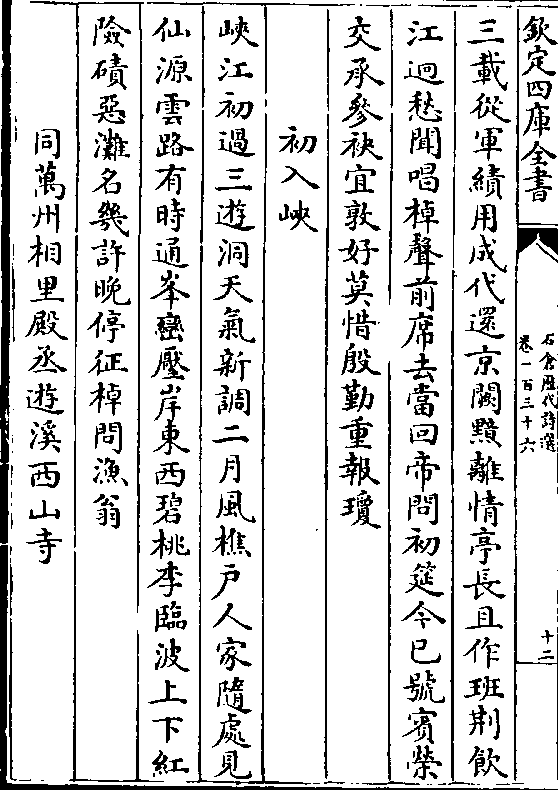 欽定四庫全書
石倉歷代詩選
卷一百三十六
十二
三載從軍績用成代還京闕黯離情亭長且作班荆飲
江迥愁聞唱棹聲前席去當回帝問初筵今已號賓榮
交承參袂宜敦好莫惜殷勤重報瓊
初入峽
峽江初過三遊洞天氣新調二月風樵戸人家隨處見
仙源雲路有時通峯巒壓岸東西碧桃李臨波上下紅
險磧惡灘名幾許晚停征棹問漁翁
同萬州相里殿丞遊溪西山寺